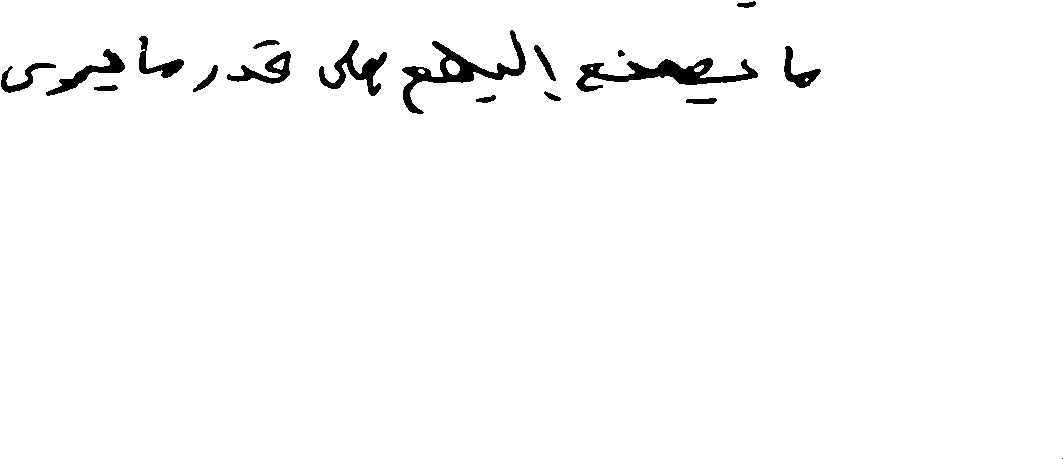 ما تصنع إليهم على قدر ما يرى